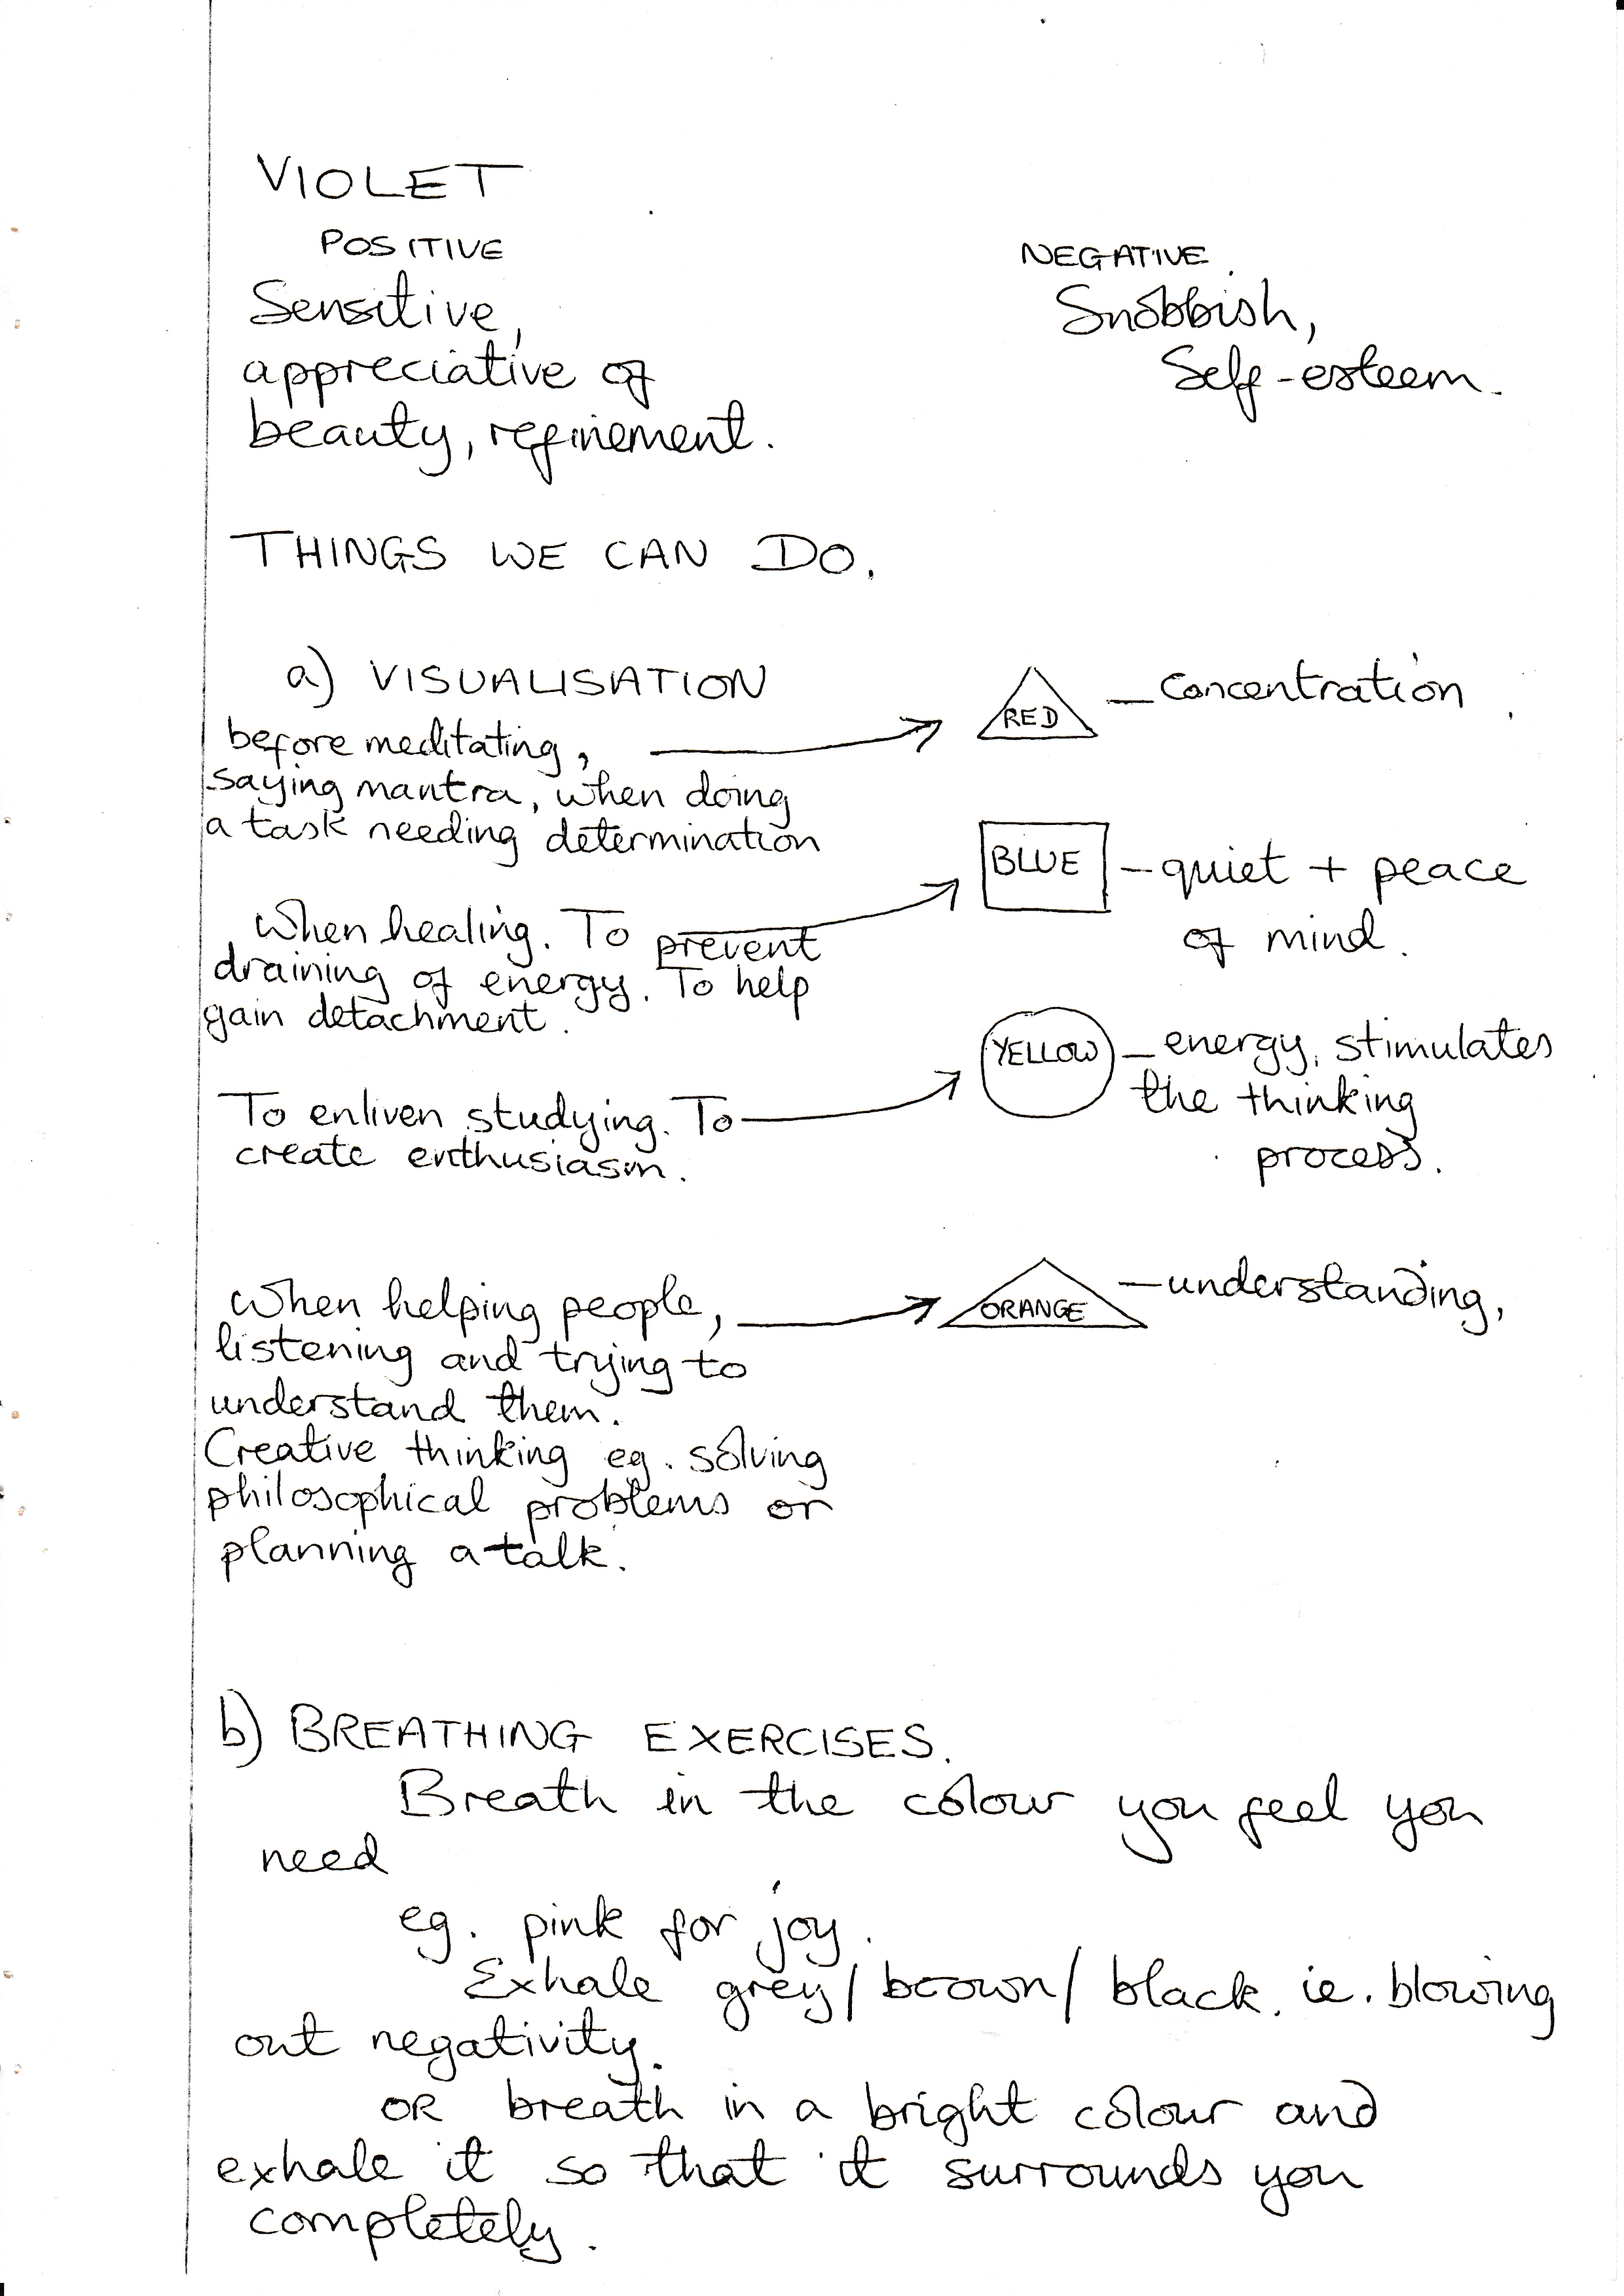 VIOLET
POSITIVE
Sensitive,
appreciative of
beauty, refinement.
NEGATIVE.
Snobbish,
Self-esteem.
THINGS WE CAN DO.
a) VISUALISATION
before meditating,
saying mantra, when doing
a task needing determination
RED
— Concentration
When healing. To prevent
draining of energy. To help
gain detachment.
BLUE
— quiet + peace
of mind.
To enliven studying. To
create enthusiasm.
YELLOW
— energy, stimulates
the thinking
process.
When helping people,
listening and trying to
understand them.
Creative thinking eg. solving
philosophical problems or
planning a talk.
ORANGE
— understanding,
b) BREATHING EXERCISES.
Breath in the colour you feel you
need
eg. pink for joy.
Exhale grey/brown/black. ie. blowing
out negativity.
OR breath in a bright colour and
exhale it so that it surrounds you
completely.